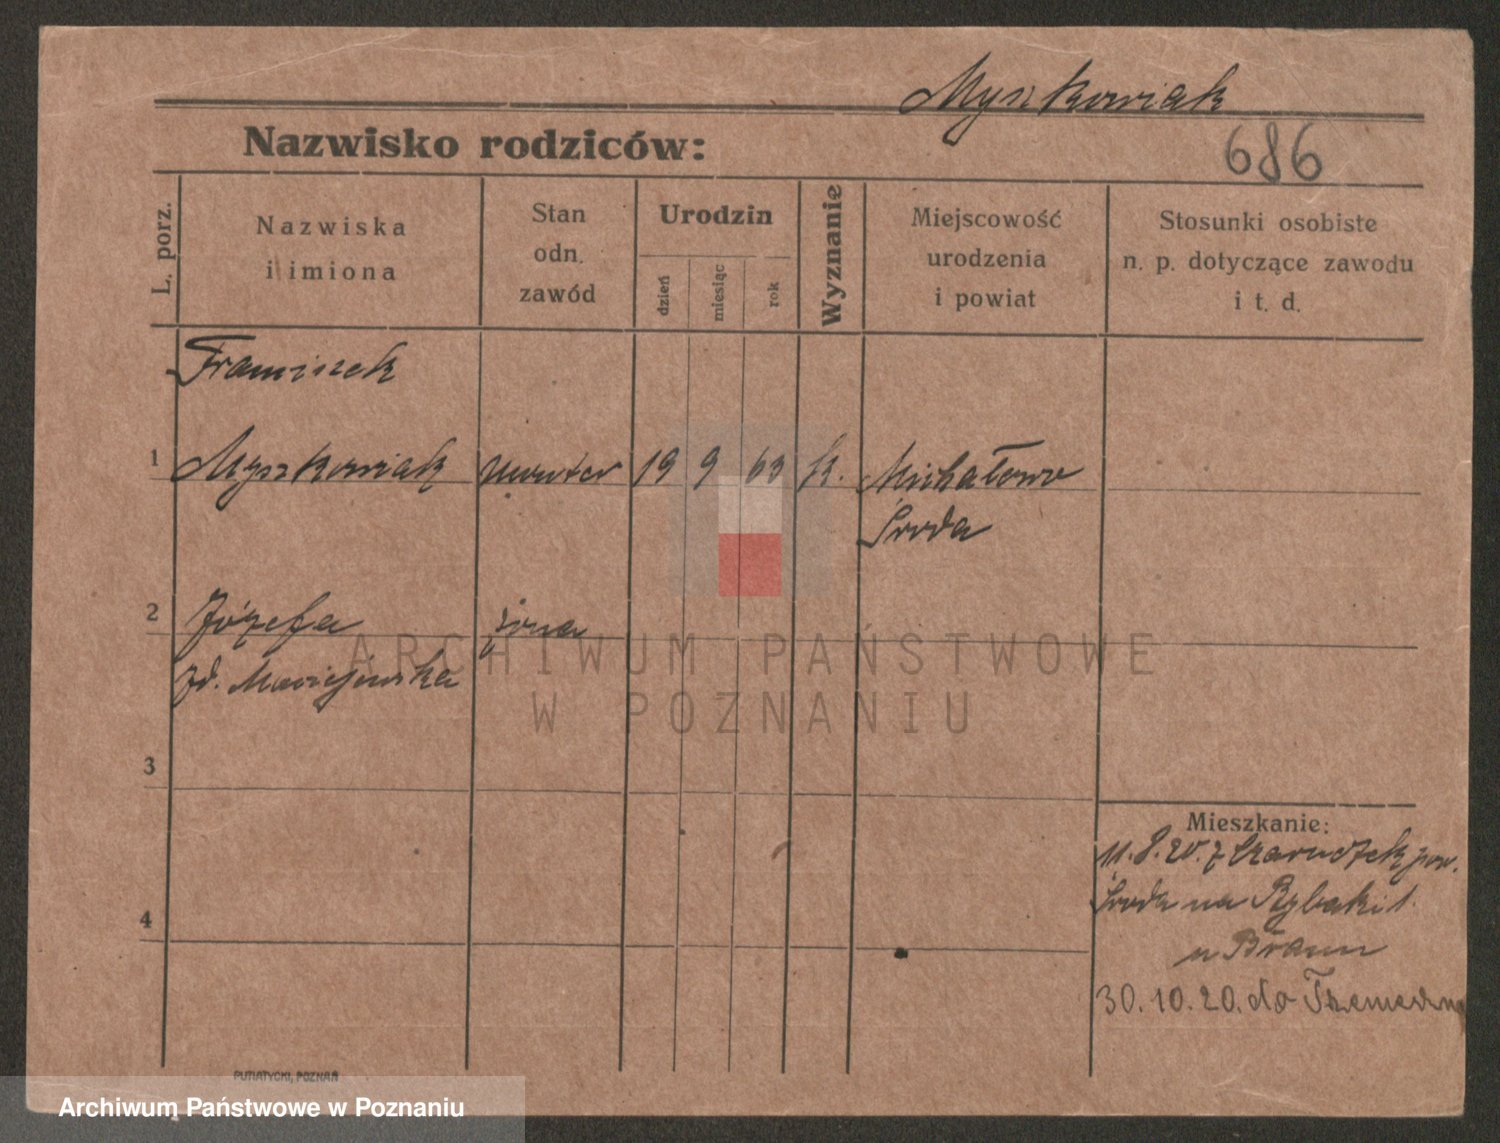 Myszkowiak
Nazwisko rodziców:
686
L. porz.
Nazwiska
i imiona
Stan
odn.
zawód
Urodzin
dzień
miesiąc
rok
Wyznanie
Miejscowość
urodzenia
i powiat
Stosunki osobiste
n. p. dotyczące zawodu
i t. d.
Franciszek
1 Myszkowiak 19 9 63 k. Michałowo
Środa
2 Józefa żona
zd. Maciejewska
3
4
Mieszkanie:
11.8.20. z pow.
Środa na Rybaki 1.
u Braun
30.10.20. do
PUTIATYCKI, POZNAŃ
ARCHIWUM PAŃSTWOWE
W POZNANIU
Archiwum Państwowe w Poznaniu